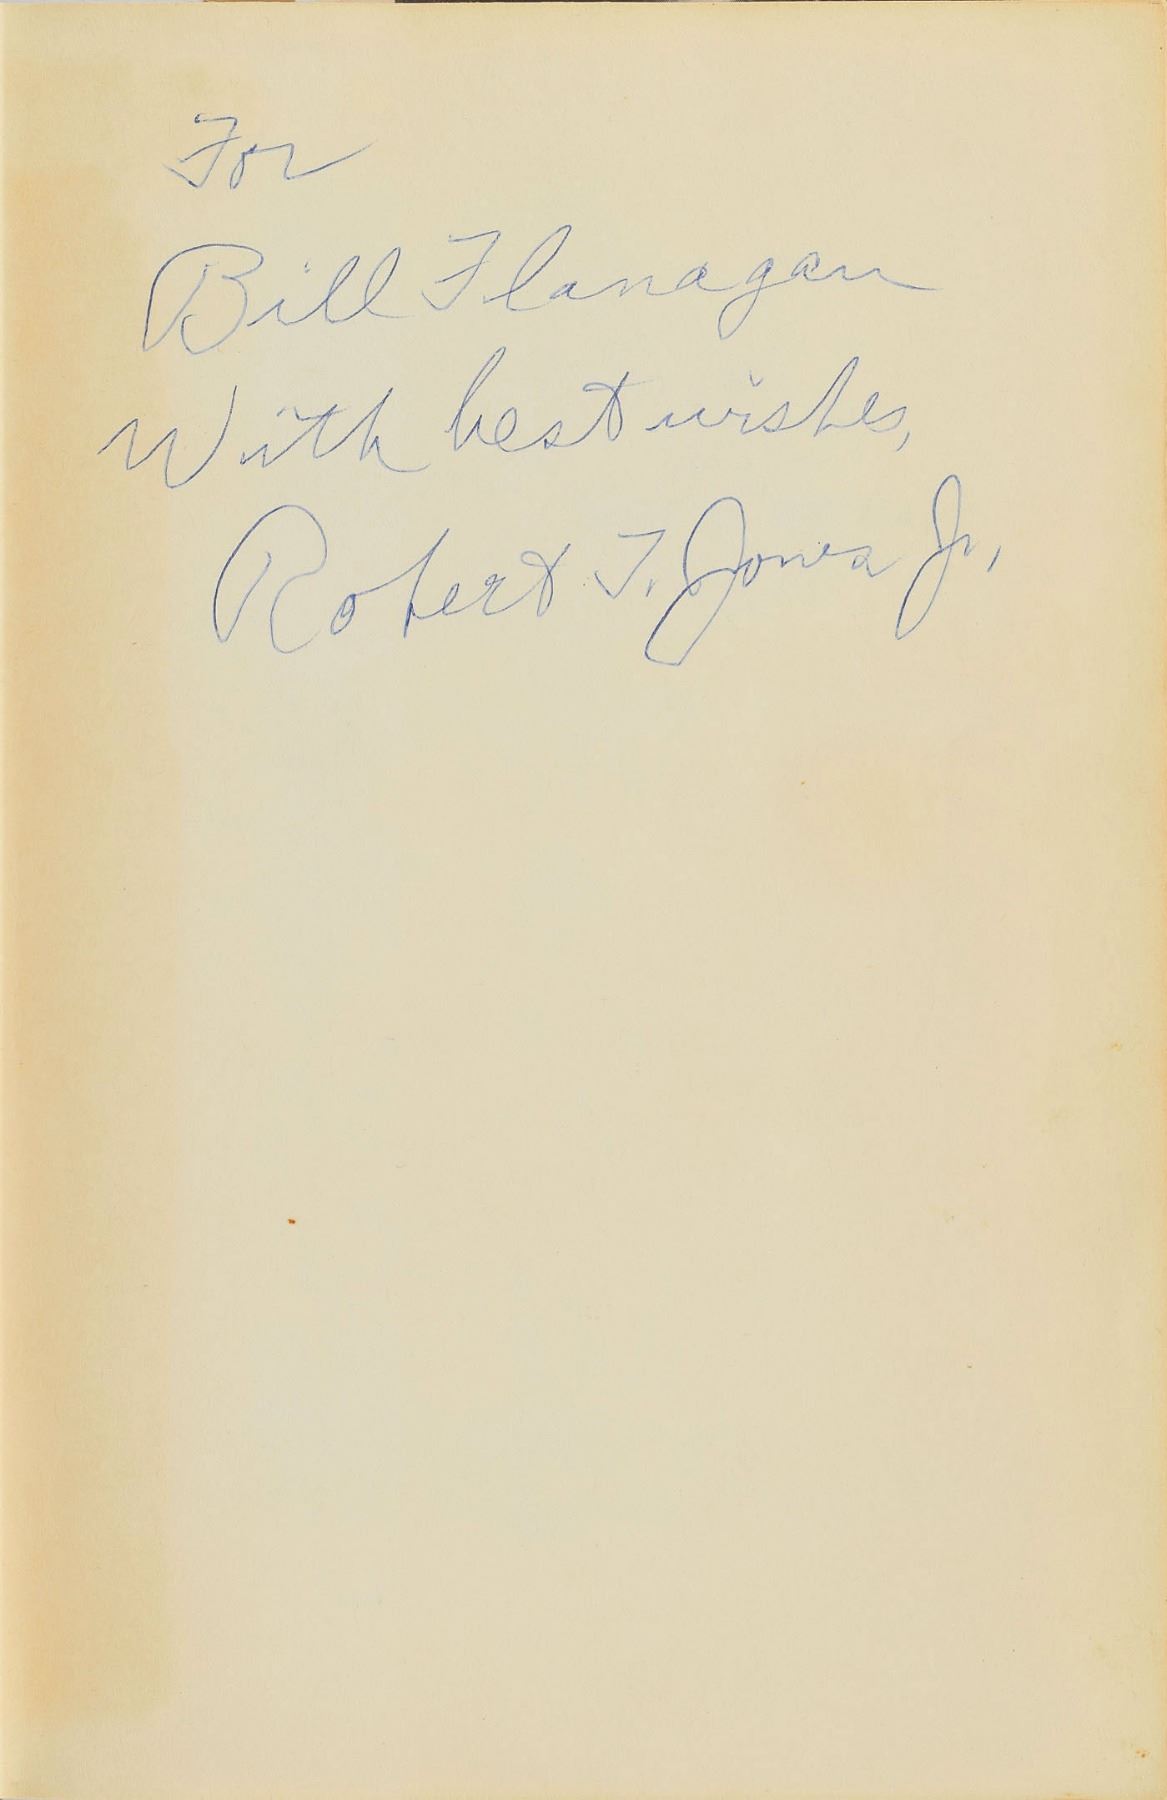 For
Bill Flanagan
With best wishes,
Robert T. Jones Jr.,